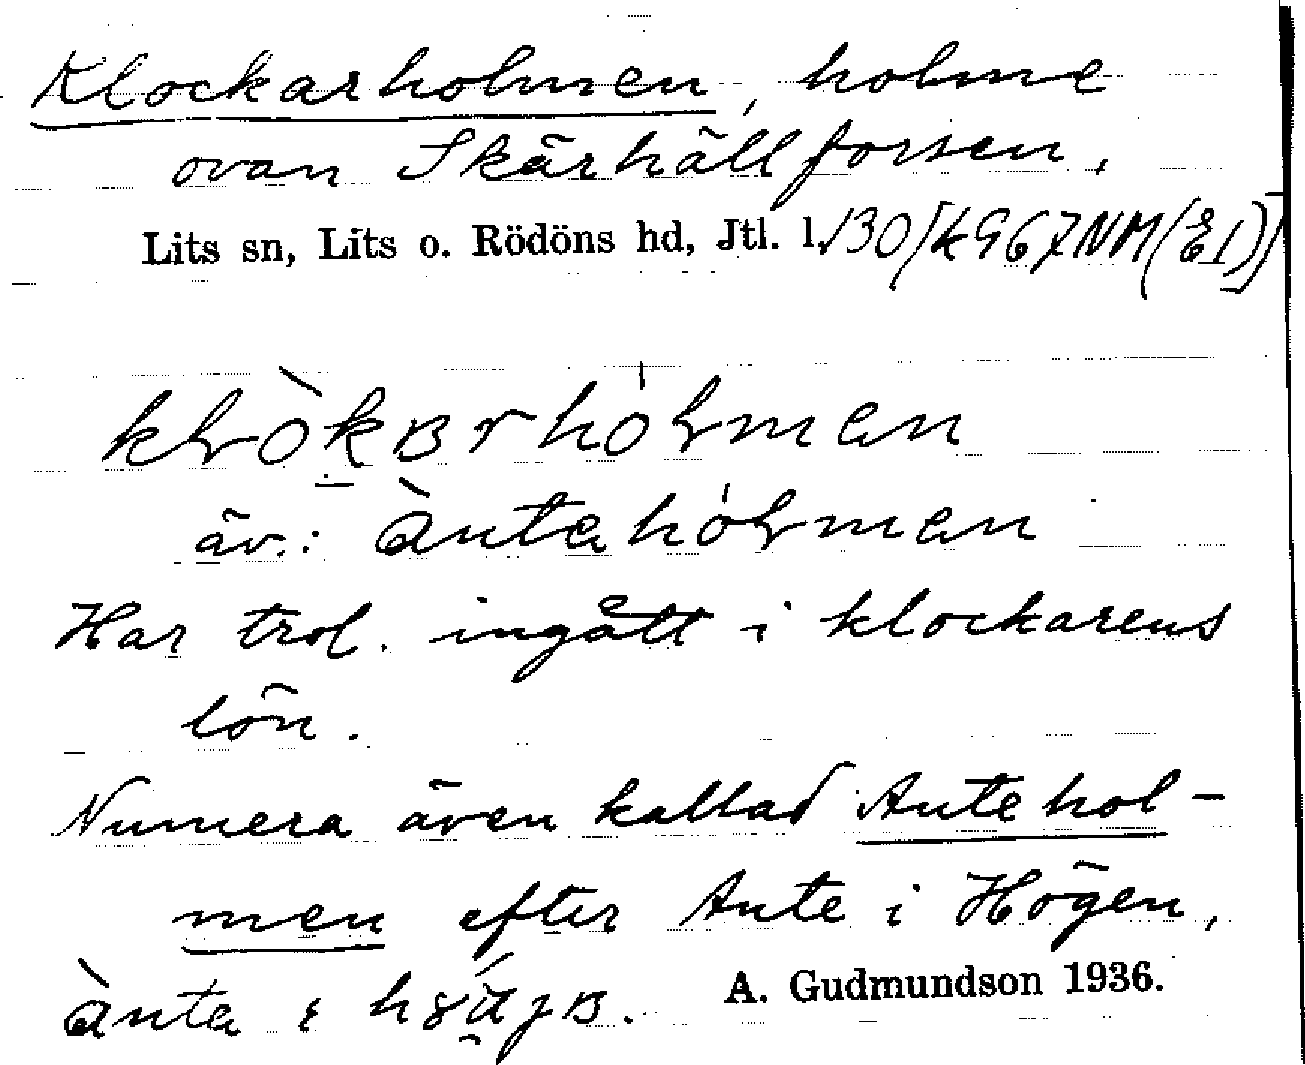 Klockarholmen, holme
ovan Skärhällforsen,
Lits sn, Lits o. Rödöns hd, Jtl. l. 130/K967NM(E1)]
äv.:
Har trol. ingått i klockarens
lön.
Numera även kallad Antehol-
men efter Ante i Högen,
A. Gudmundson 1936.